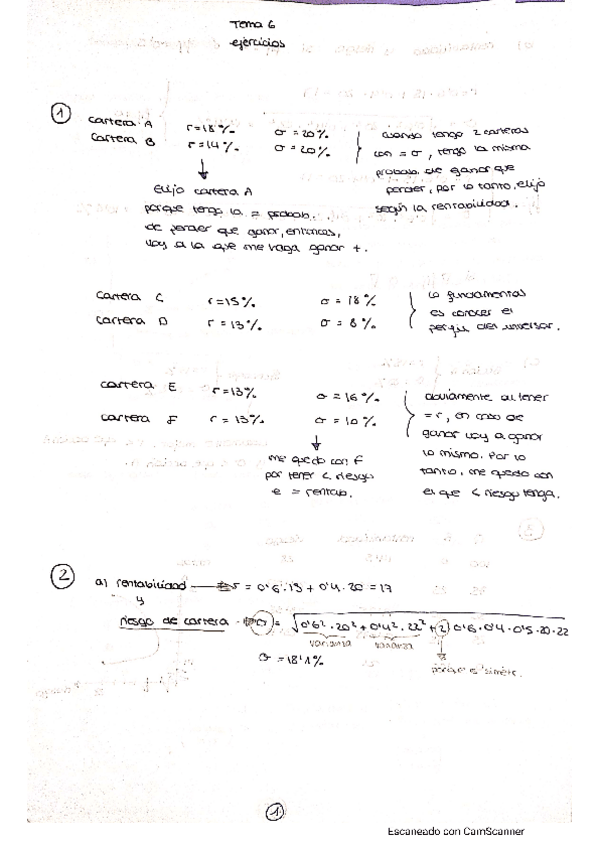 Tema 6
ejercicios
① cartera A r=18% σ=20%
cartera B r=14% σ=20%
cuando tengo 2 carteras
con = σ, tengo la misma
probab. de ganar que
perder, por lo tanto, elijo
según la rentabilidad.
elijo cartera A
porque tengo la = probab.
de perder que ganar, entonces,
voy a la que me haga ganar +.
cartera C r=15% σ=18%
cartera D r=13% σ=8%
lo fundamental
es conocer el
perfil del inversor.
cartera E r=13% σ=16%
cartera F r=13% σ=10%
obviamente al tener
=r, en caso de
ganar voy a ganar
lo mismo. Por lo
tanto, me quedo con
el que < riesgo tenga.
me quedo con F
por tener < riesgo
e = rentab.
② a) rentabilidad r = 0'6·15 + 0'4·20 = 17
y
riesgo de cartera σ = √0'6²·20² + 0'4²·22² + 2·0'6·0'4·0'5·20·22
varianza varianza
σ = 18'1%
porque es simétr.
1
Escaneado con CamScanner